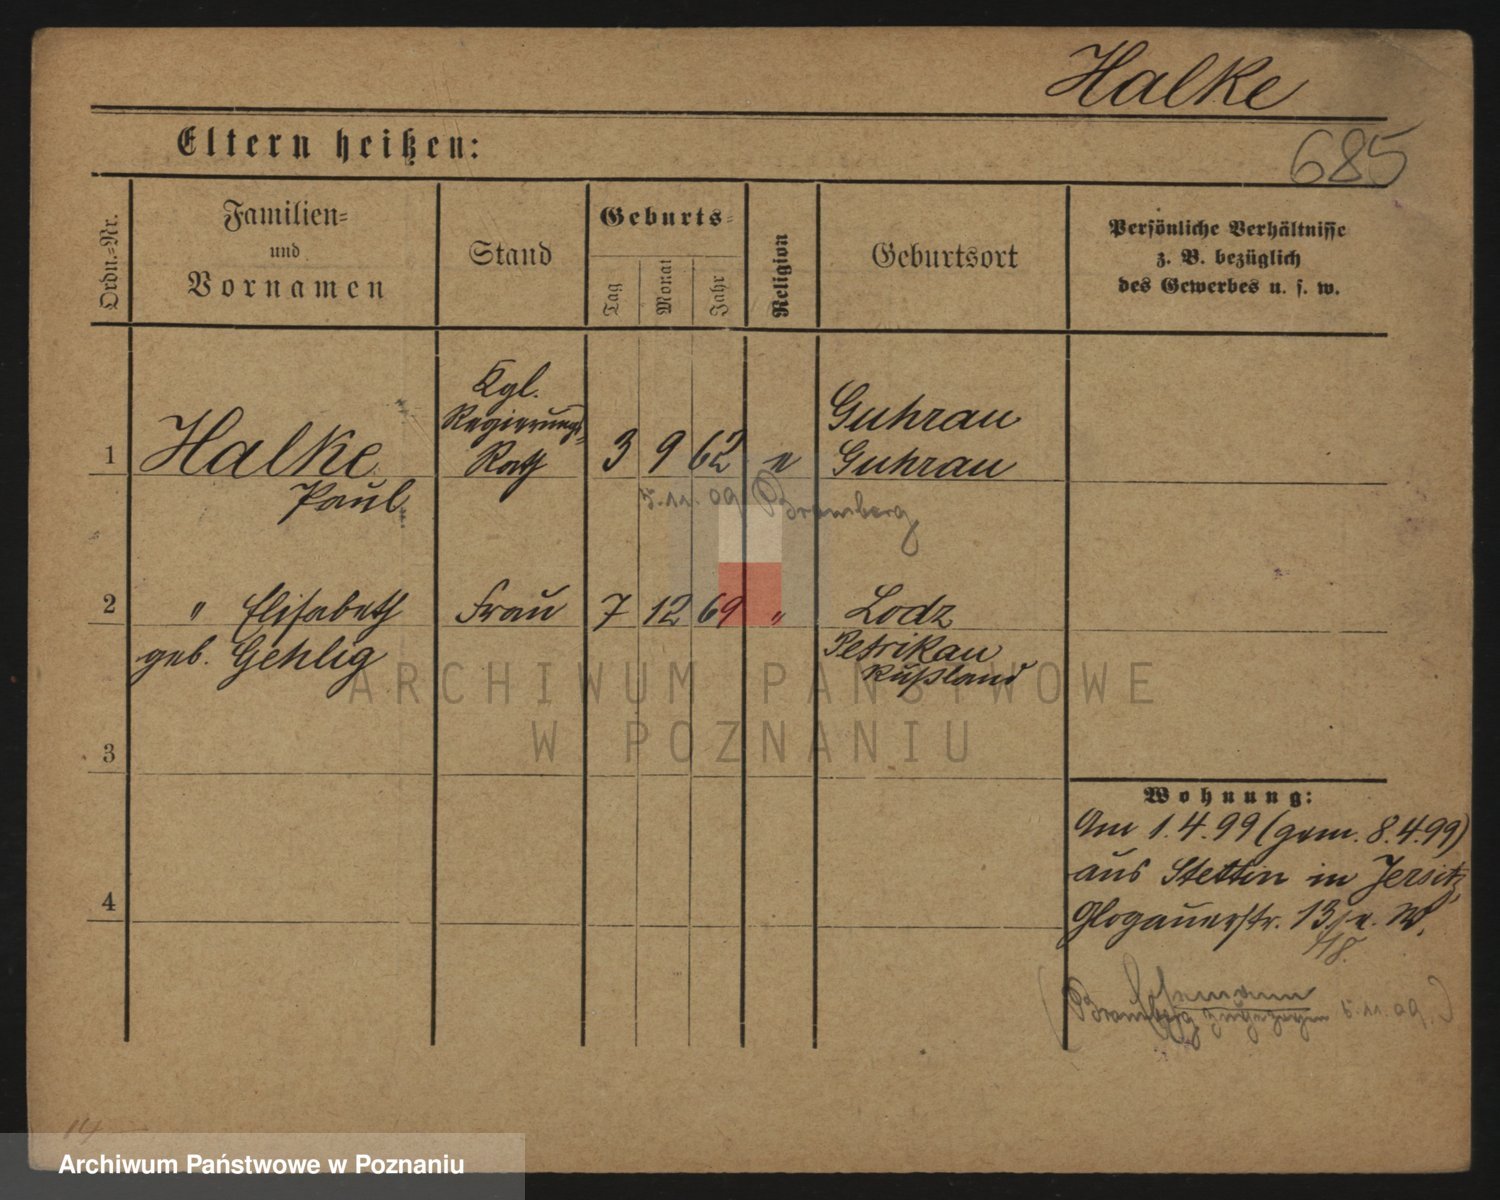 Halke
685
Eltern heißen:
Ordn.-Nr.
Familien-
und
Vornamen
Stand
Geburts-
Tag
Monat
Jahr
Religion
Geburtsort
Persönliche Verhältnisse
z. B. bezüglich
des Gewerbes u. s. w.
1 Halke Kgl. Regierungs- Rath 3 9 62 e Guhrau
Guhrau
Paul
5.11.09 Bromberg
2 " Elisabeth Frau 7 12 69 " Lodz
geb. Gehlig Petrikau
Rußland
3
4
Wohnung:
Am 1.4.99 (gem. 8.4.99)
aus Stettin in Jersitz,
Glogauerstr. 13
Bromberg zugezogen 5.11.09.
ARCHIWUM PAŃSTWOWE
W POZNANIU
Archiwum Państwowe w Poznaniu